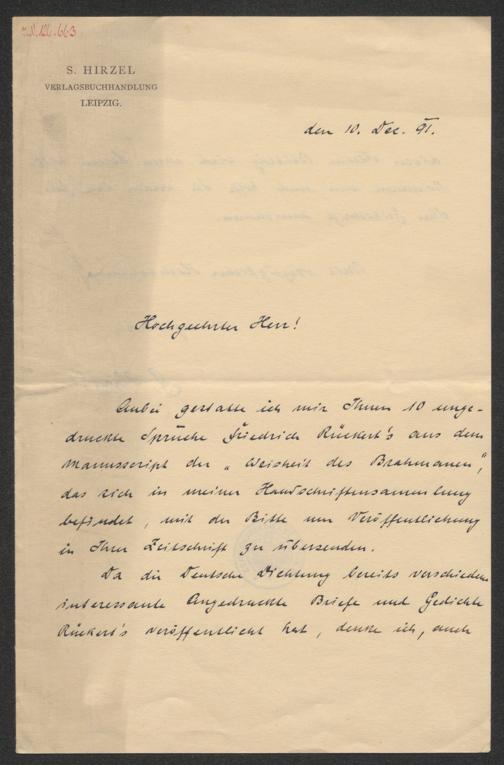 I.N. 126.663
S. HIRZEL
VERLAGSBUCHHANDLUNG
LEIPZIG.
den 10. Dec. 91.
Hochgeehrter Herr!
Anbei gestatte ich mir Ihnen 10 unge-
druckte Sprüche Friedrich Rückert's aus dem
Manuscript der „Weisheit des Brahmanen",
das sich in meiner Handschriftensammlung
befindet, mit der Bitte um Veröffentlichung
in Ihrer Zeitschrift zu übersenden.
Da die Deutsche Dichtung bereits verschiedene
interessante Ungedruckte Briefe und Gedichte
Rückert's veröffentlicht hat, denke ich, auch